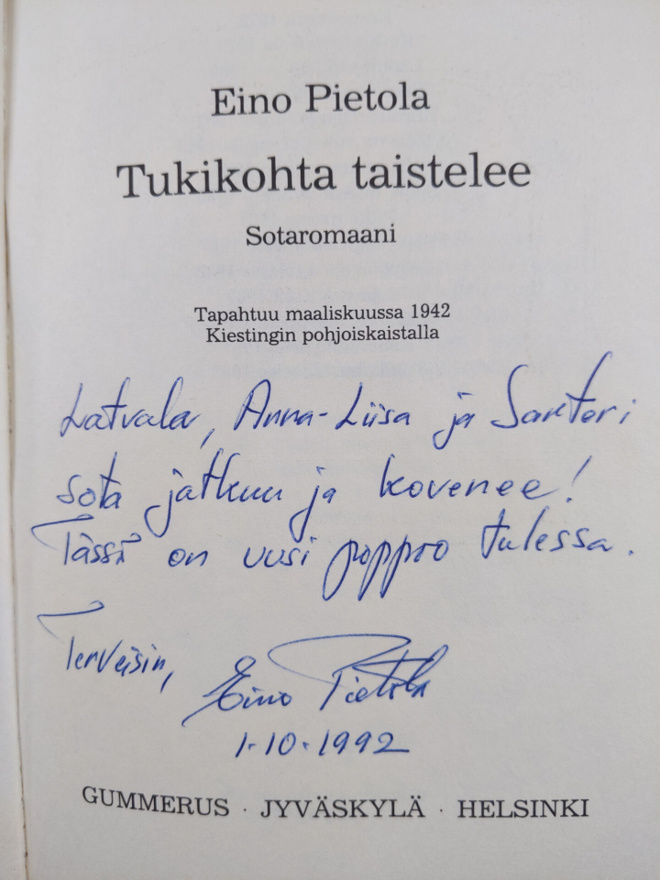 Eino Pietola
Tukikohta taistelee
Sotaromaani
Tapahtuu maaliskuussa 1942
Kiestingin pohjoiskaistalla
Latvala, Anna-Liisa ja Santeri
sota jatkuu ja kovenee!
Tässä on uusi poppoo tulessa.
Terveisin,
Eino Pietola
1.10.1992
GUMMERUS · JYVÄSKYLÄ · HELSINKI